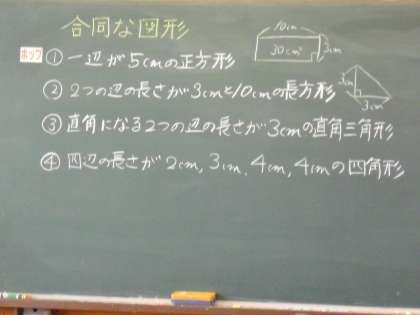 合同な図形
ホップ
① 一辺が5cmの正方形
② 2つの辺の長さが3cmと10cmの長方形
③ 直角になる2つの辺の長さが3cmの直角三角形
④ 四辺の長さが2cm, 3cm, 4cm, 4cmの四角形
10cm
30cm²
3cm
3cm
3cm